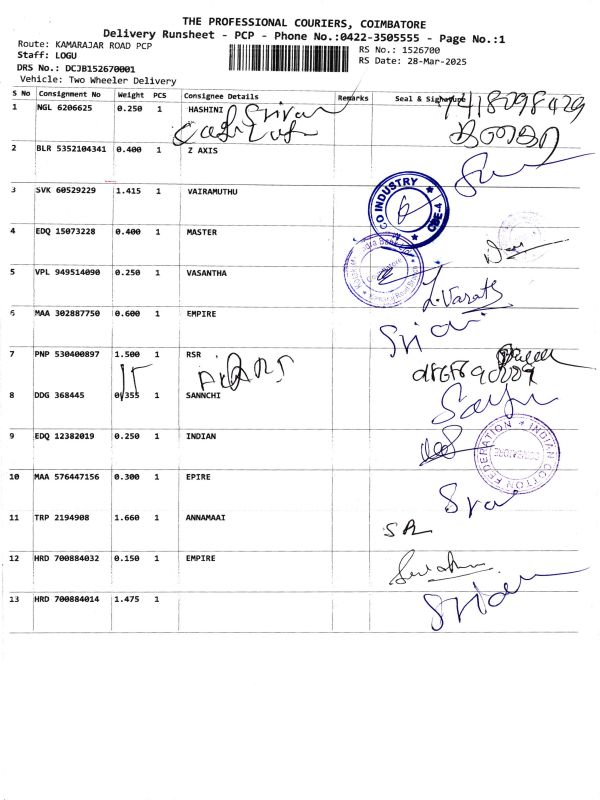 THE PROFESSIONAL COURIERS, COIMBATORE
Delivery Runsheet - PCP - Phone No.:0422-3505555 - Page No.:1
Route: KAMARAJAR ROAD PCP
Staff: LOGU
DRS No.: DCJB152670001
Vehicle: Two Wheeler Delivery
RS No.: 1526700
RS Date: 28-Mar-2025
S No Consignment No Weight PCS Consignee Details Remarks Seal & Signature
1 NGL 6206625 0.250 1 HASHINI
2 BLR 5352104341 0.400 1 Z AXIS
3 SVK 60529229 1.415 1 VAIRAMUTHU
CO INDUSTRY
CBE-4
4 EDQ 15073228 0.400 1 MASTER
5 VPL 949514090 0.250 1 VASANTHA
6 MAA 302887750 0.600 1 EMPIRE
7 PNP 530400897 1.500 1 RSR
8 DDG 368445 0.355 1 SANNCHI
9 EDQ 12382019 0.250 1 INDIAN
INDIAN COTTON FEDERATION
10 MAA 576447156 0.300 1 EPIRE
11 TRP 2194908 1.660 1 ANNAMAAI
12 HRD 700884032 0.150 1 EMPIRE
13 HRD 700884014 1.475 1